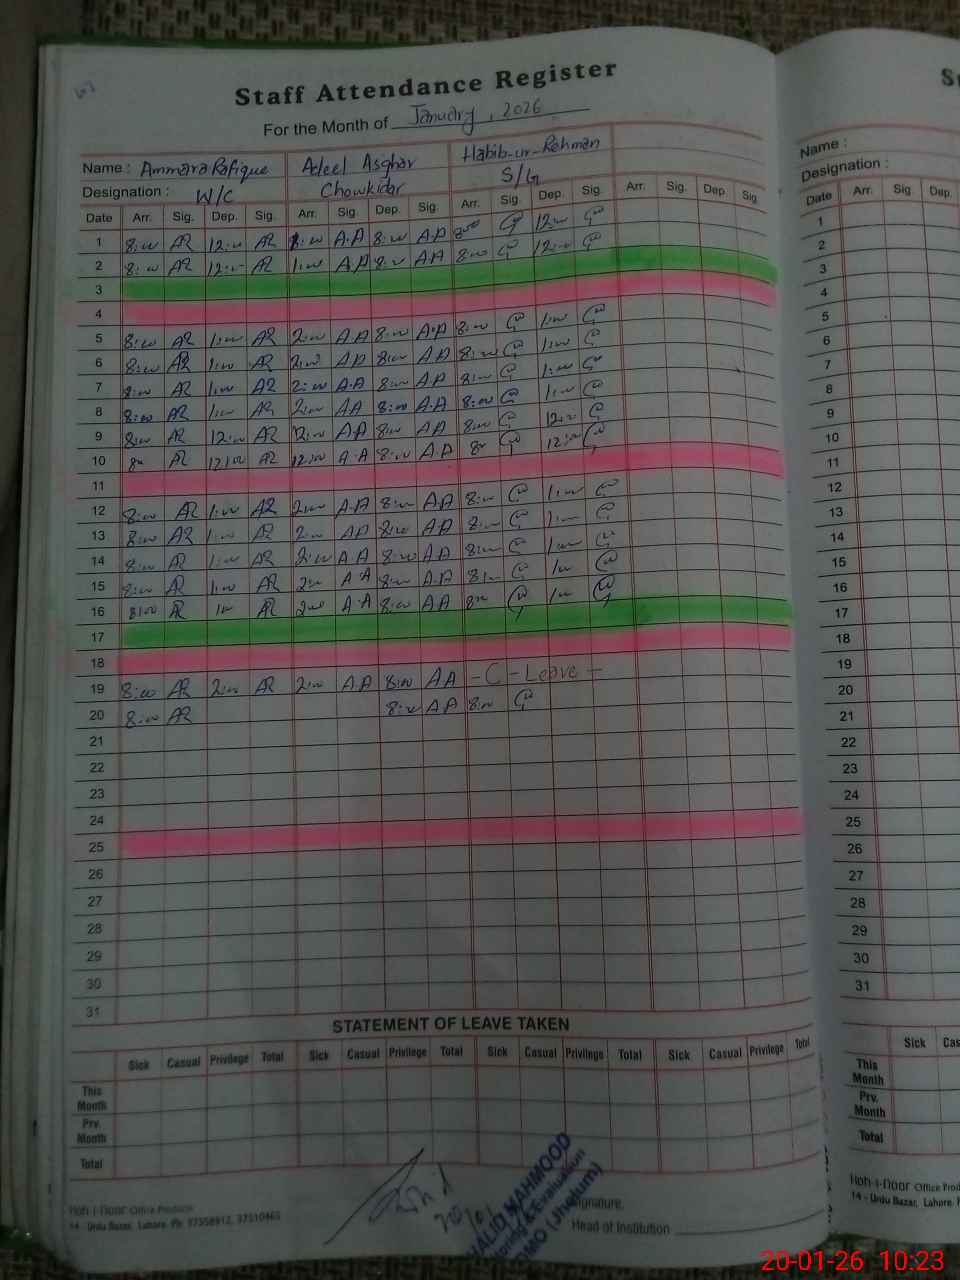 Staff Attendance Register
For the Month of January, 2026
Name : Ammara Rafique Adeel Asghar Habib-ur-Rehman
Designation : W/C Chowkidar S/G
Date Arr. Sig. Dep. Sig. Arr. Sig. Dep. Sig. Arr. Sig. Dep. Sig. Arr. Sig. Dep. Sig.
1 8:00 AR 12:00 AR 8:00 A.A 8:00 A.A 8:00 12:00
2 8:00 AR 12:00 AR 1:00 A.A 8:00 AA 8:00 12:00
3
4
5 8:00 AR 1:00 AR 2:00 AA 8:00 A.A 8:00 1:00
6 8:00 AR 1:00 AR 2:00 AA 8:00 AA 8:00 1:00
7 8:00 AR 1:00 AR 2:00 A.A 8:00 AA 8:00 1:00
8 8:00 AR 1:00 AR 2:00 AA 8:00 A.A 8:00 1:00
9 8:00 AR 12:00 AR 12:00 AA 8:00 AA 8:00 12:00
10 8:00 AR 12:00 AR 12:00 A.A 8:00 A.A 8:00 12:00
11
12 8:00 AR 1:00 AR 2:00 A.A 8:00 AA 8:00 1:00
13 8:00 AR 1:00 AR 2:00 AA 8:00 AA 8:00 1:00
14 8:00 AR 1:00 AR 2:00 A.A 8:00 A.A 8:00 1:00
15 8:00 AR 1:00 AR 2:00 A.A 8:00 A.A 8:00 1:00
16 8:00 AR 1:00 AR 2:00 A.A 8:00 AA 8:00 1:00
17
18
19 8:00 AR 2:00 AR 2:00 AA 8:00 AA - C - Leave -
20 8:00 AR 8:00 AA 8:00
21
22
23
24
25
26
27
28
29
30
31
STATEMENT OF LEAVE TAKEN
Sick Casual Privilege Total Sick Casual Privilege Total Sick Casual Privilege Total Sick Casual Privilege Total
This Month
Prv. Month
Total
Office Products
14 - Urdu Bazar, Lahore. Ph: 37358912, 37310465
KHALID MAHMOOD
Monitoring & Evaluation
DMO (Jhelum)
Signature,
Head of Institution
Name :
Designation :
Date Arr. Sig. Dep.
1
2
3
4
5
6
7
8
9
10
11
12
13
14
15
16
17
18
19
20
21
22
23
24
25
26
27
28
29
30
31
Sick
This Month
Prv. Month
Total
14 - Urdu Bazar, Lahore.
20-01-26 10:23